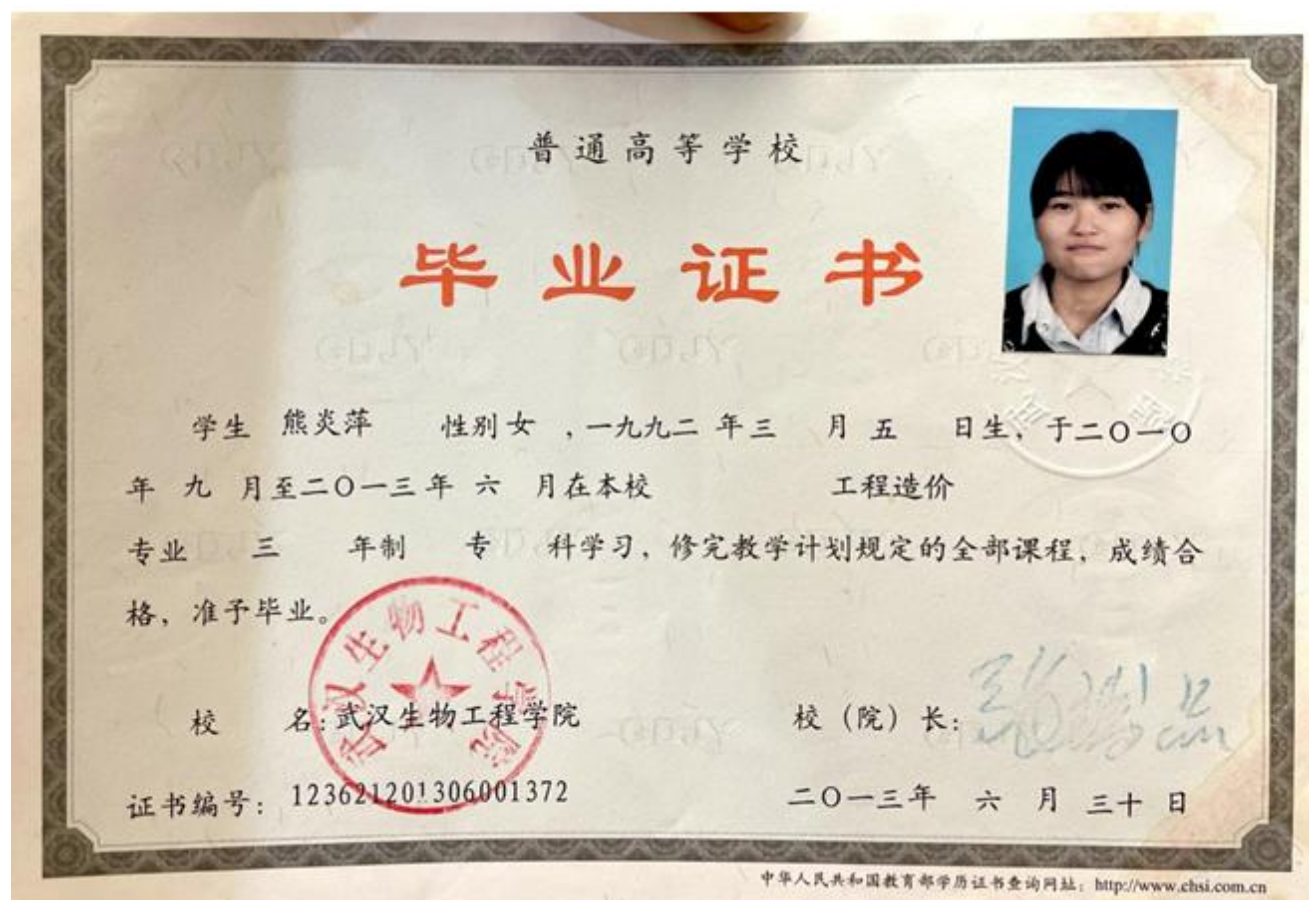 普通高等学校
毕业证书
学生 熊炎萍 性别 女 , 一九九二 年 三 月 五 日生, 于二〇一〇
年 九 月至二〇一三年 六 月在本校 工程造价
专业 三 年制 专 科学习, 修完教学计划规定的全部课程, 成绩合
格, 准予毕业。
武汉生物工程学院
校 名: 武汉生物工程学院 校（院）长:
证书编号: 123621201306001372 二〇一三年 六 月 三十 日
中华人民共和国教育部学历证书查询网址: http://www.chsi.com.cn